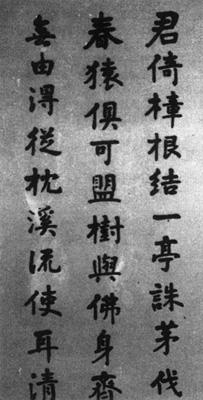 君倚樟根結一亭誅茅伐
春猿俱可盟樹與佛身齊
無由得從枕溪流使耳清